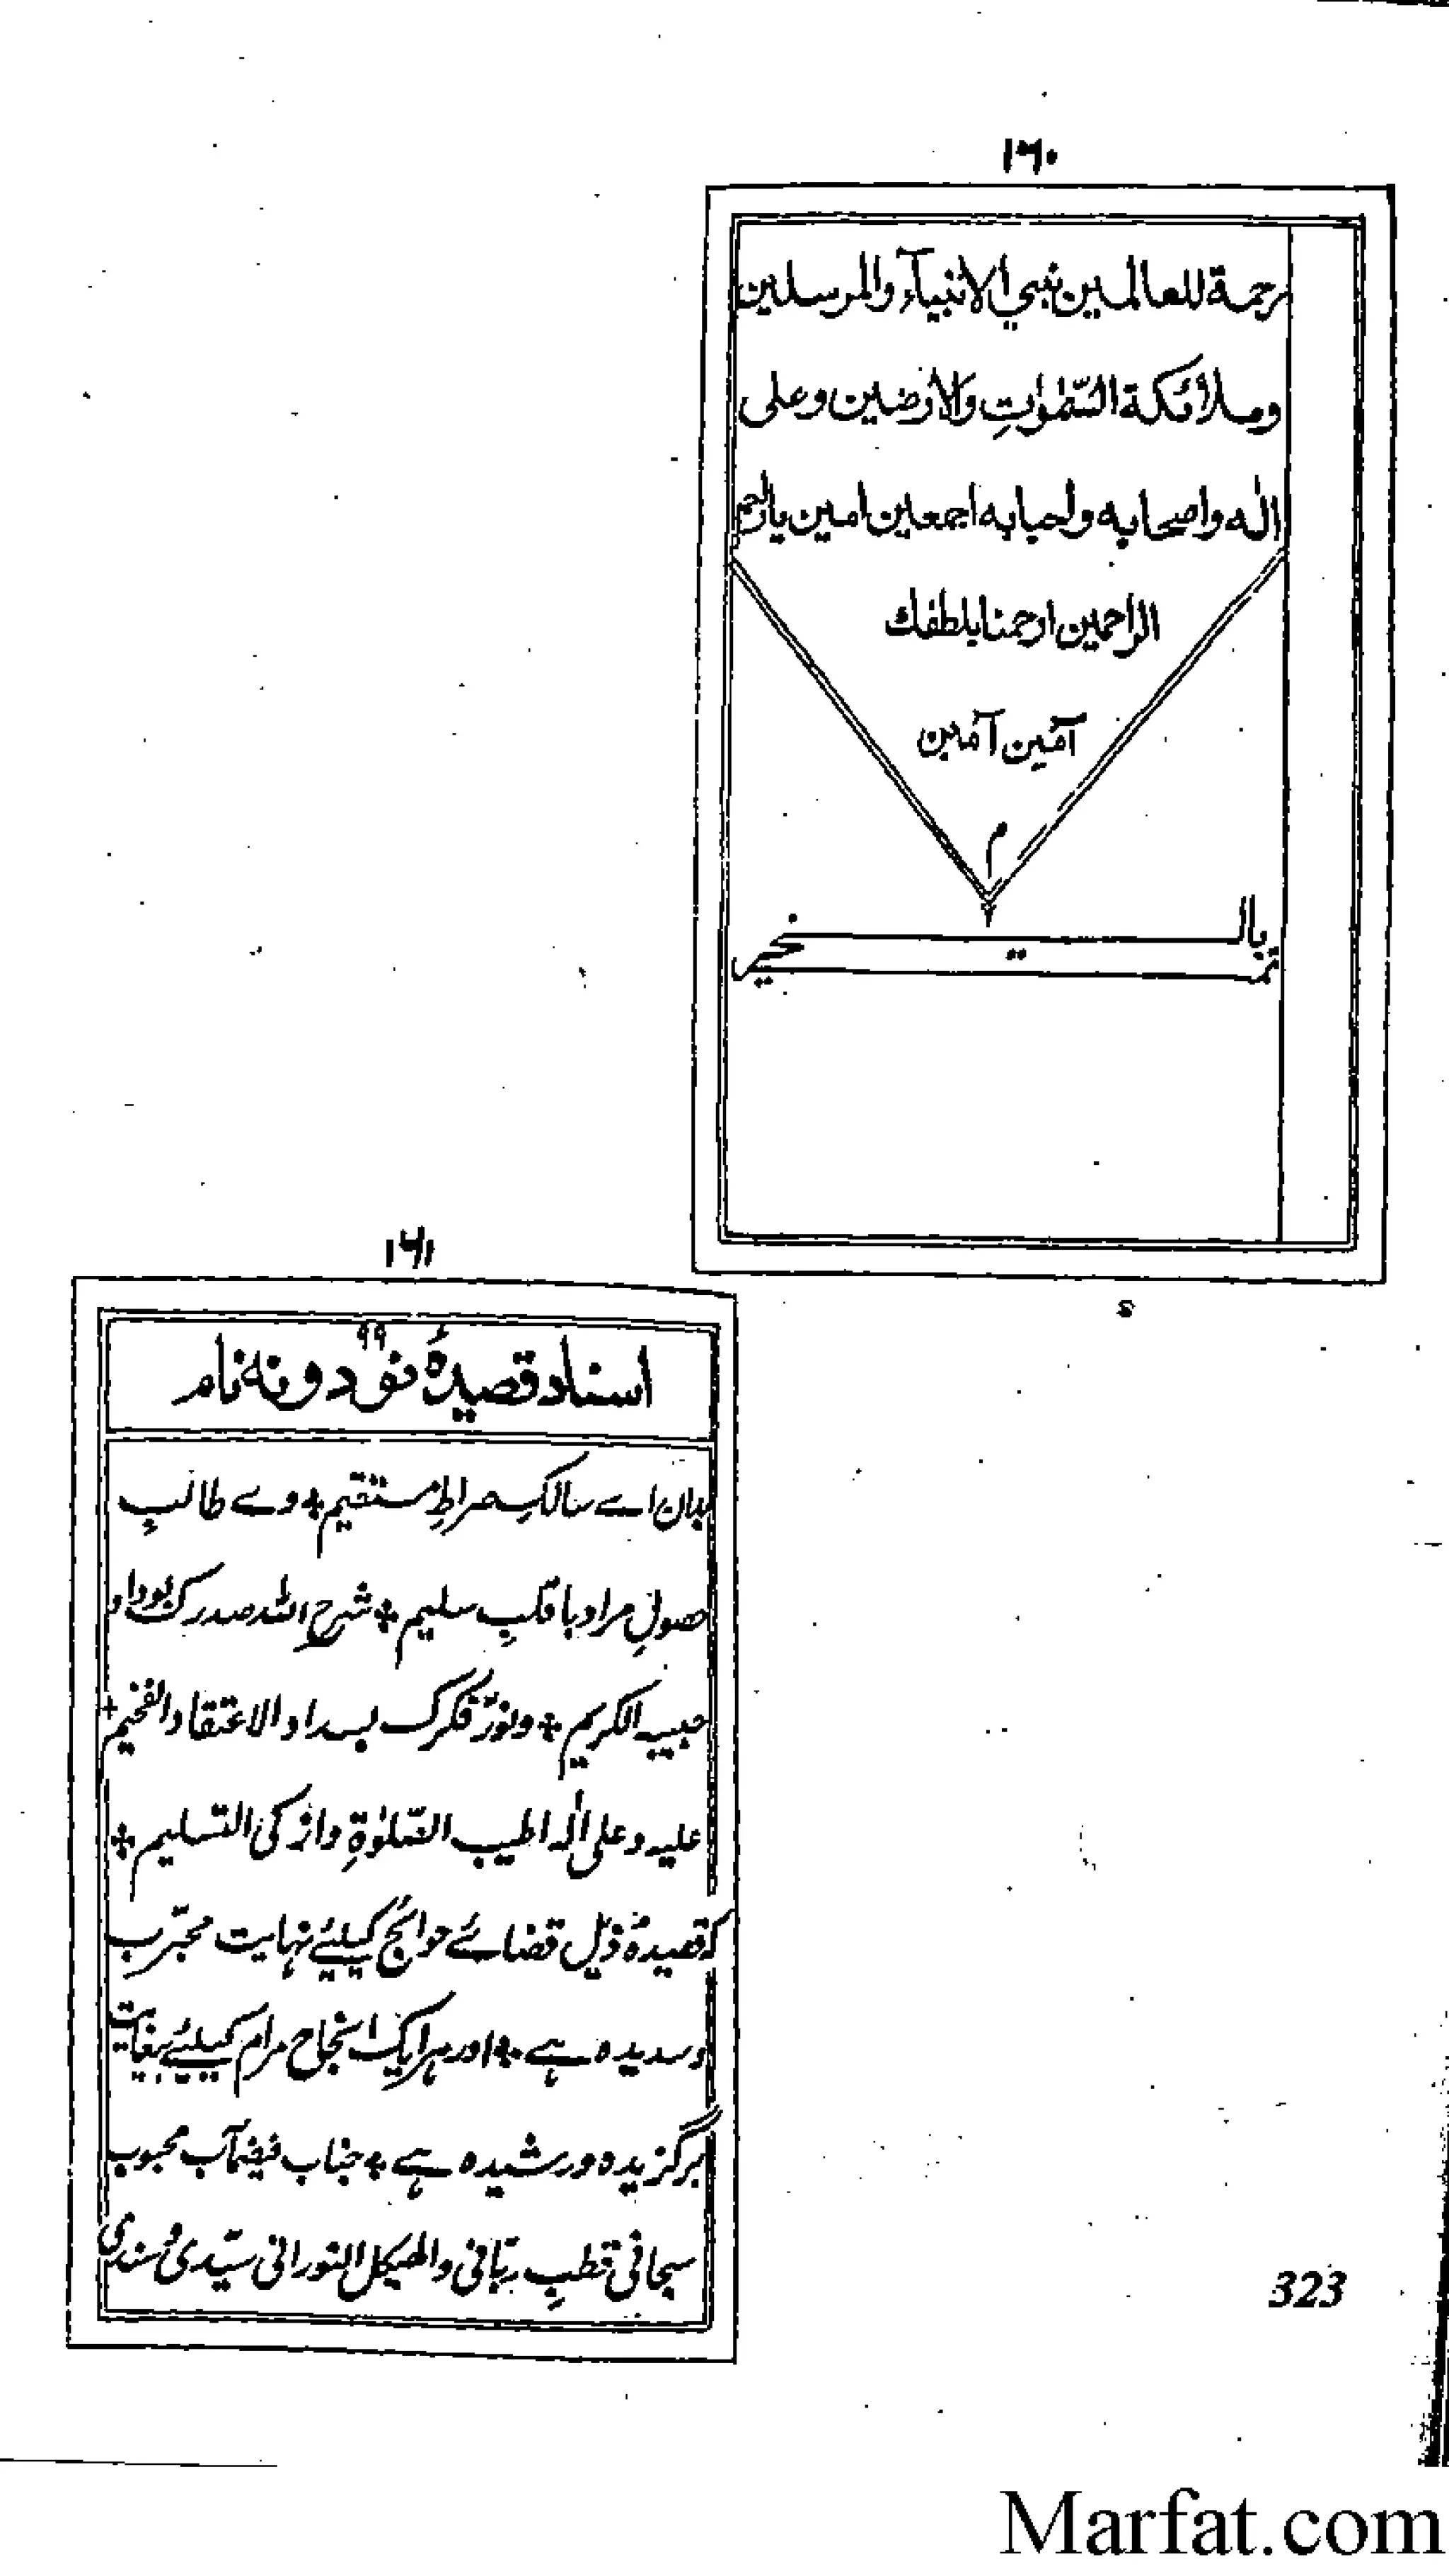 ۱۶۰
رحمة للعالمین نبی الانبیآء والمرسلین
وملائکة السّمٰوٰتِ والارضین وعلی
اٰله واصحابه واحبابه اجمعین امین یاارحم
الراحمین ارحمنا بلطفك
آمین آمین
م
تمت بالخیر
۱۶۱
اسناد قصیدۂ نود و نه نام
۹۹
بدان اے سالکِ صراطِ مستقیم ٭ وے طالبِ
حصولِ مراد با قلبِ سلیم ٭ شرح اللہ صدرک بوداد
حبیبہ الکریم ٭ ونوّر فکرک بسداد الاعتقاد الفخیم ٭
علیہ وعلیٰ اٰلہ اطیب الصّلوٰۃِ وازکی التسلیم ٭
کہ قصیدۂ ذیل قضائے حوائج کیلئے نہایت مجرّب
وسدیدہ ہے ٭ اور ہر ایک انجاح مرام کیلئے بغایت
برگزیدہ ورشیدہ ہے ٭ جناب فیضمآب محبوب
سبحانی قطبِ ربّانی والهیکل النورانی سیّدی وسندی
323
Marfat.com